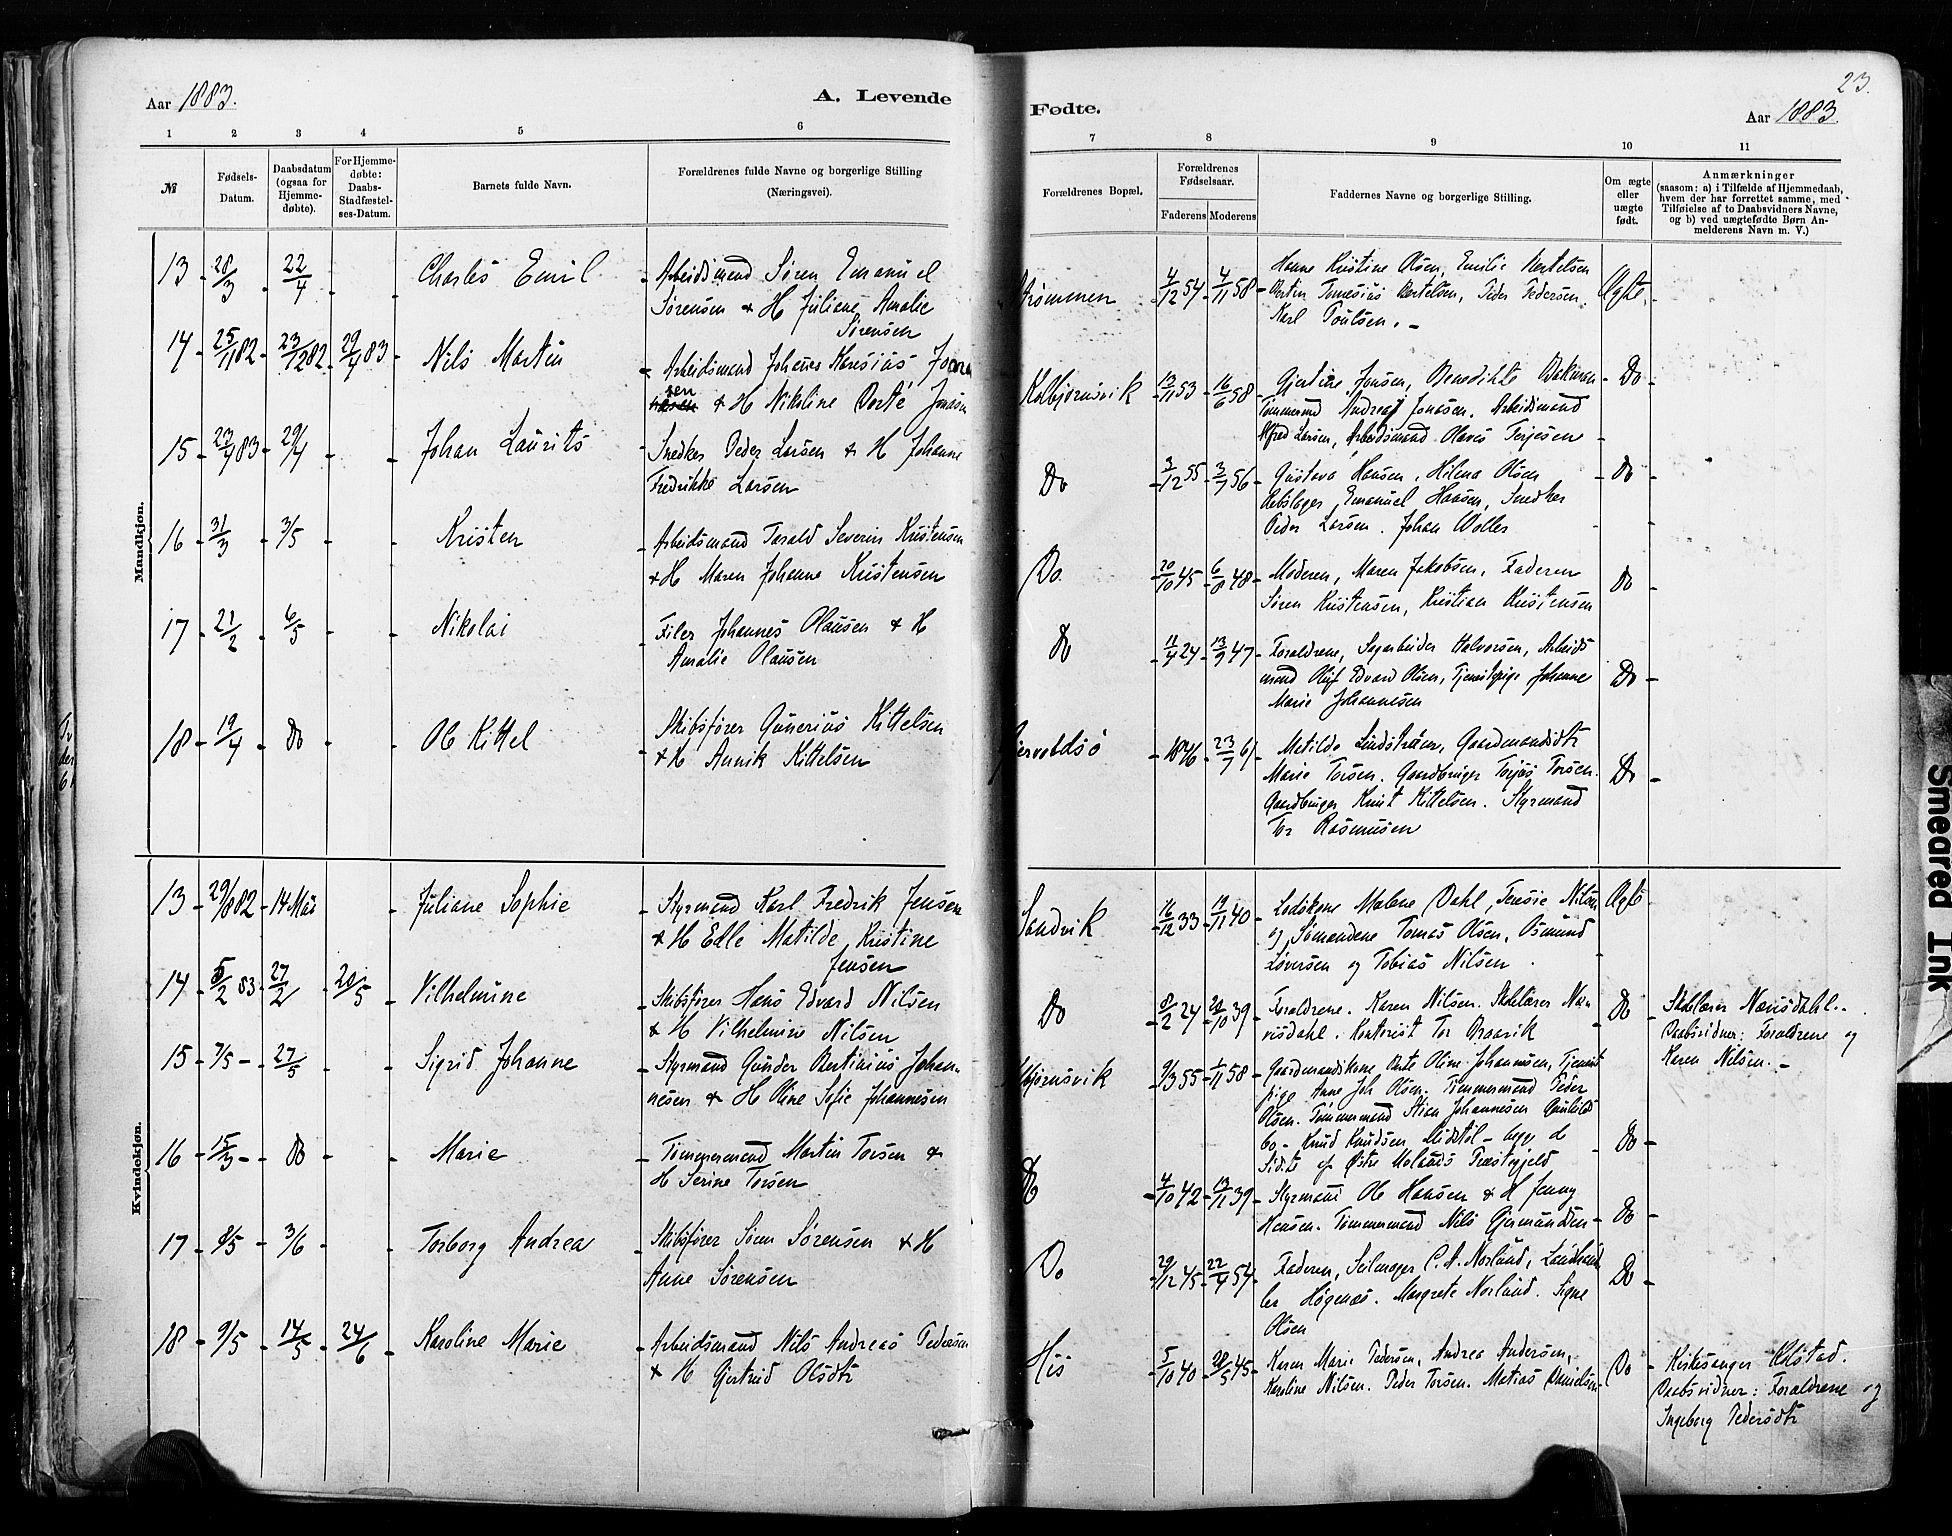 23.
Aar 1883.
A. Levende
Fødte.
Aar 1883.
1 2 3 4 5 6
7 8 9 10 11
№
Fødsels-
Datum.
Daabsdatum
(ogsaa for
Hjemme-
døbte).
For Hjemme-
døbte:
Daabs-
Stadfæstel-
ses-Datum.
Barnets fulde Navn.
Forældrenes fulde Navne og borgerlige Stilling
(Næringsvei).
Forældrenes Bopæl.
Forældrenes
Fødselsaar.
Faderens Moderens
Faddernes Navne og borgerlige Stilling.
Om ægte
eller
uægte
født.
Anmærkninger
(saasom: a) i Tilfælde af Hjemmedaab,
hvem der har forrettet samme, med
Tilføielse af to Daabsvidners Navne,
og b) ved uægtefødte Børn An-
melderens Navn m. V.)
Mandkjøn.
13 28/3 22/4 Charles Emil
Arbeidsmand Søren Emanuel
Sørensen & H Juliane Amalie
Sørensen
4/12 54 4/11 58
Hanne Kristine Olsen, Emilie Bertelsen
Bertin Tomesius Bertelsen, Peder Pedersen.
Karl Poulsen.
Ægte
14 25/11 82 23/12 82 29/4 83 Nils Martin
Arbeidsmand Johanes Karesius
sen & H Nikoline Dorte Jonasn
Kolbjørnsvik 13/11 53 16/6 58
Jensen, Benedikte
Tømmermand Andreas Jonasen. Arbeidsmand
Alfred Larsen, Arbeidsmand Olaves Terjesen
Do
15 23/4 83 29/4 Johan Laurits
Snedker Peder Larsen & H Johanne
Fredrikke Larsen
Do 3/12 55 3/7 56
Gustava Hansen, Helena Olsen
Rebslager Emanuel Hansen, Snedker
Peder Larsen. Johan Woller
Do
16 31/3 3/5 Kristen
Arbeidsmand Tarald Severin Kristensen
& H Maren Johanne Kristensen
Do. 20/10 45 6/8 48
Moderen, Maren Jakobsen, Faderen
Søren Kristensen, Kristian Kristensen
Do
17 21/2 6/5 Nikolai
Filer Johannes Olausen & H
Amalie Olausen
Do 11/4 24 13/9 47
Forældrene, Sagarbeider Halvorsen, Arbeids
mand Oluf Edvard Olsen, Tjenstepige Johanne
Marie Johannesen
Do
18 19/4 Do Ole Kittel
Skibsfører Gunerius Kittelsen
& H Annik Kittelsen
1846 23/7 61
Matilde Lindstrøm, Gaardmandsdtr
Marie Torsen. Gaardbruger Terjes Torsen.
Gaardbruger Knut Kittelsen. Styrmand
Tor Rasmusen
Do
Kvindekjøn.
13 29/8 82 14 Mai Juliane Sophie
Styrmand Karl Fredrik Jensen
& H Edle Matilde Kristine
Jensen
Sandvik 16/12 33 19/11 40
Lodskone Malene Dahl, Nilsen
og Sømandene Tomas Olsen, Osmund
Løversen og Tobias Nilsen.
Ægte
14 5/2 83 27/2 20/5 Vilhelmine
Skibsfører Hans Edvard Nilsen
& H Vilhelmine Nilsen
Do 8/2 24 20/10 39
Forældrene. Karen Nilsen. Skolelærer Næv-
isdahl. Kontorist Tor Braarik
Do
Skolelærer Nævisdahl.
Daabsvidner: Forældrene og
Karen Nilsen.
15 7/5 27/5 Sigrid Johanne
Styrmand Gunder Bertinius Johan-
nesen & H Oline Sofie Johannesen
9/3 55 1/11 58
Gaardmandskone Berte Oline Johannesen, Tjenist
pige Anne Joh Olsen. Tømmermand Peder
Olsen. Tømmermand Stian Johannesen
bo - Knud Knudsen Midtøl - begge de
Sidste af Østre Molands Præstegjeld
16 15/3 Do Marie
Tømmermand Martin Torsen &
H Serine Torsen
Do 4/10 42 13/11 39
Styrmand Ole Hansen & H Jenny
Hansen. Tømmermand Nils Gjermundsen
Do
17 8/5 3/6 Torborg Andrea
Skibsfører Søren Sørensen & H
Anne Sørensen
Do 29/12 45 22/4 54
Faderen, Seilmager C. A. Norlund, Landhand
ler Høgenes. Margrete Norlund. Signe
Olsen
Do
18 9/5 14/5 24/6 Karoline Marie
Arbeidsmand Nils Andreas Pedersen
& H Gjertrud Olsdtr
His 5/10 40 28/5 45
Karen Marie Pedersen, Andrea Andersen,
Karoline Nilsen. Peder Torsen. Matias Danielsen
Do
Kirkesanger Kolstad.
Daabsvidner: Forældrene og
Ingeborg Pedersdtr
Smeared Ink